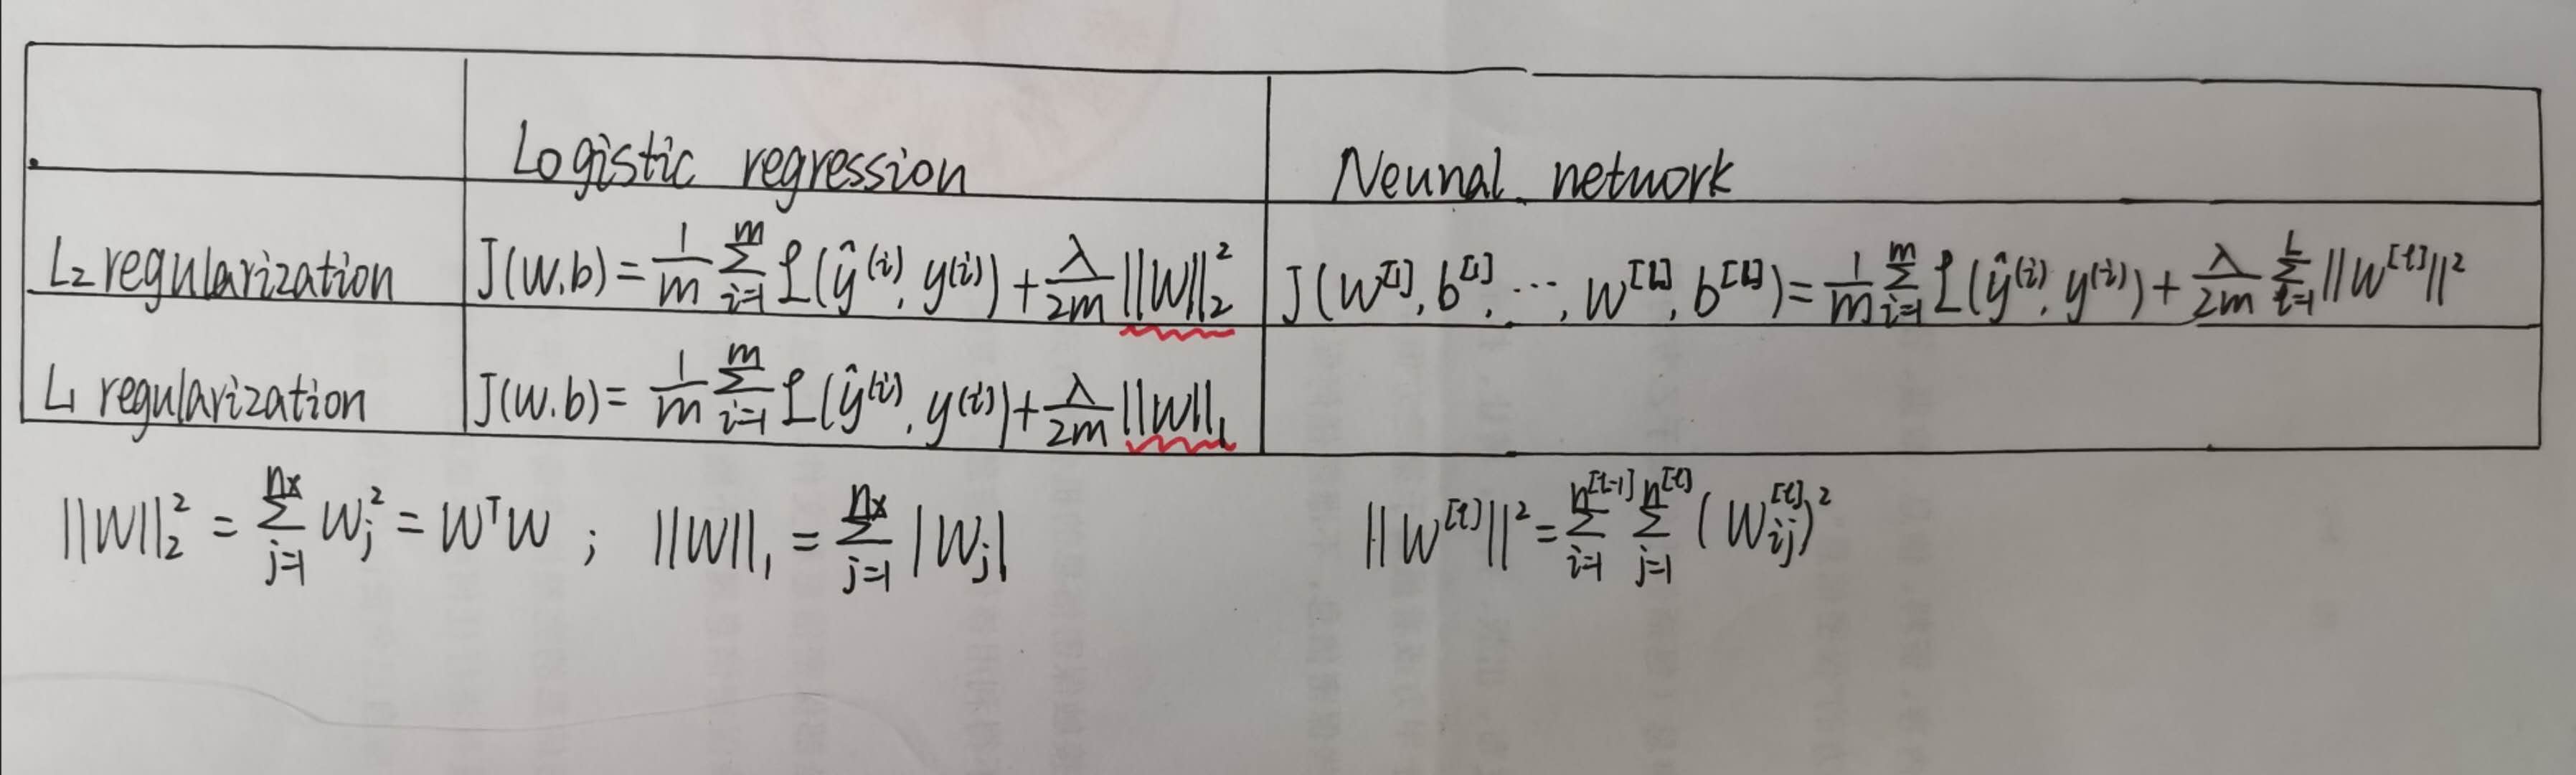 Logistic regression Neunal network
L₂ regularization J(w.b) = 1/m ∑_{i=1}^{m} ℒ(ŷ^{(i)}, y^{(i)}) + λ/2m ||W||₂² J(W^{[1]}, b^{[1]}, ⋯, W^{[L]}, b^{[L]}) = 1/m ∑_{i=1}^{m} ℒ(ŷ^{(i)}, y^{(i)}) + λ/2m ∑_{l=1}^{L} ||W^{[l]}||²
L₁ regularization J(w.b) = 1/m ∑_{i=1}^{m} ℒ(ŷ^{(i)}, y^{(i)}) + λ/2m ||W||₁
||W||₂² = ∑_{j=1}^{nx} W_j² = WᵀW ; ||W||₁ = ∑_{j=1}^{nx} |W_j| ||W^{[l]}||² = ∑_{i=1}^{n^{[l-1]}} ∑_{j=1}^{n^{[l]}} (W_{ij}^{[l]})²